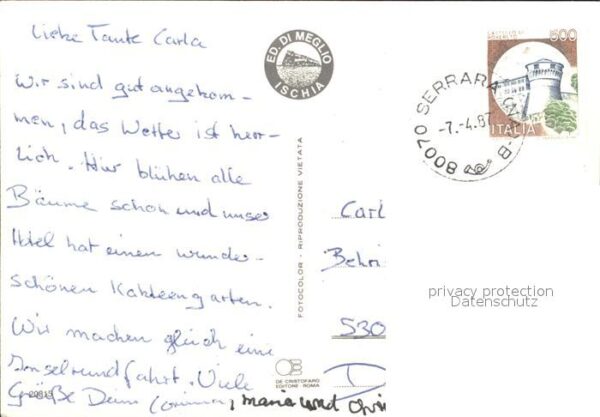 Liebe Tante Carla
Wir sind gut angekom-
men, das Wetter ist herr-
lich. Hier blühen alle
Bäume schon und unser
Hotel hat einen wunder-
schönen Kakteengarten.
Wir machen gleich eine
Inselrundfahrt. Viele
Grüße Deine Corinna, Maria und
20613
ED. DI MEGLIO
ISCHIA
FOTOCOLOR - RIPRODUZIONE VIETATA
DE CRISTOFARO
EDITORE ROMA
CASTELLO DI
ROVERETO
500
ITALIA
80070 SERRARA
-7.-4.87
Carl
Behri
530
privacy protection
Datenschutz